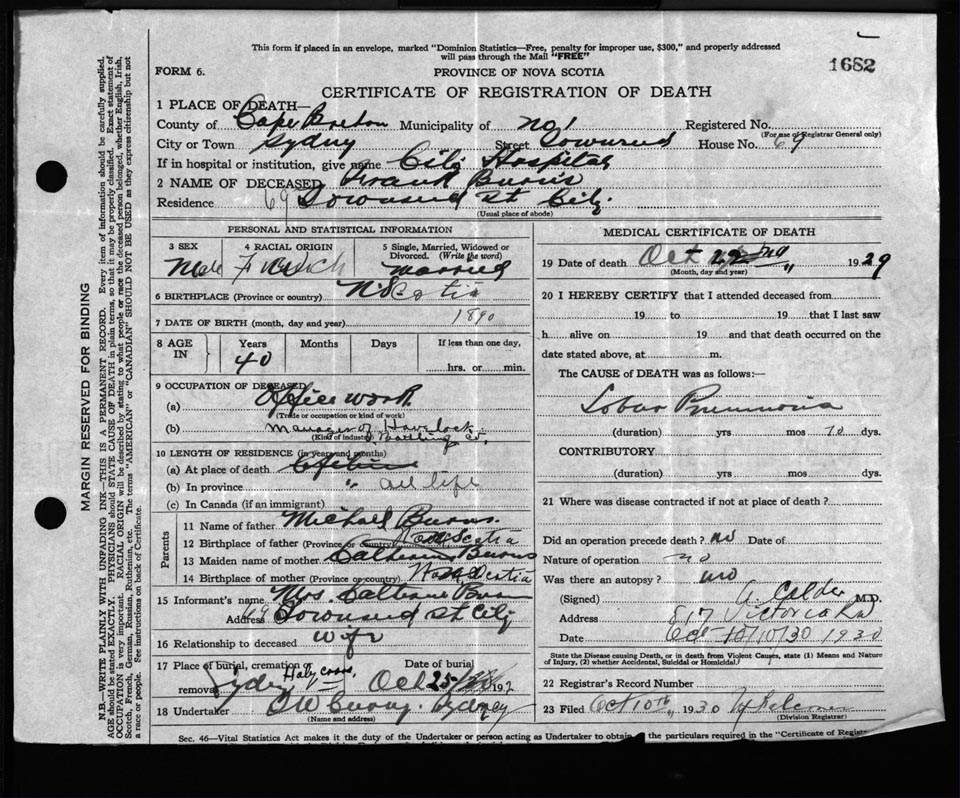 This form if placed in an envelope, marked "Dominion Statistics—Free, penalty for improper use, $300," and properly addressed
will pass through the Mail "FREE"
1682
FORM 6.
PROVINCE OF NOVA SCOTIA
CERTIFICATE OF REGISTRATION OF DEATH
1 PLACE OF DEATH—
County of Cape Breton Municipality of No 1 Registered No.
(For use of Registrar General only)
City or Town Sydney Street Townsend House No. 69
If in hospital or institution, give name City Hospital
2 NAME OF DECEASED Frank Burns
Residence 69 Townsend St City.
(Usual place of abode)
PERSONAL AND STATISTICAL INFORMATION
3 SEX 4 RACIAL ORIGIN 5 Single, Married, Widowed or Divorced. (Write the word)
Male Married
6 BIRTHPLACE (Province or country) N Scotia
7 DATE OF BIRTH (month, day and year) 1890
8 AGE IN Years Months Days If less than one day,
40 hrs. or min.
9 OCCUPATION OF DECEASED
(a) Office work
(Trade or occupation or kind of work)
(b) Manager of Havelock Bottling Co,
(Kind of industry)
10 LENGTH OF RESIDENCE (in years and months)
(a) At place of death Lifetime
(b) In province " all life
(c) In Canada (if an immigrant)
Parents
11 Name of father Michael Burns.
12 Birthplace of father (Province or country) Nova Scotia
13 Maiden name of mother Catherine Burns
14 Birthplace of mother (Province or country) Nova Scotia
15 Informant's name Mrs. Burns
Address 69 Townsend St City
16 Relationship to deceased Wife
17 Place of burial, cremation or removal Date of burial
Sydney Holy Cross, Oct 25 193
18 Undertaker Sydney
(Name and address)
MEDICAL CERTIFICATE OF DEATH
19 Date of death Oct 22nd " 1929
(Month, day and year)
20 I HEREBY CERTIFY that I attended deceased from
19 to 19 that I last saw
h alive on 19 and that death occurred on the
date stated above, at m.
The CAUSE of DEATH was as follows:—
Lobar Pneumonia
(duration) yrs mos 10 dys.
CONTRIBUTORY
(duration) yrs mos dys.
21 Where was disease contracted if not at place of death?
Did an operation precede death? no Date of
Nature of operation no
Was there an autopsy? no
(Signed) A. Calder M.D.
Address 817 Victoria Rd
Date Oct 10/10/30 1930
State the Disease causing Death, or in death from Violent Causes, state (1) Means and Nature
of Injury, (2) whether Accidental, Suicidal or Homicidal.
22 Registrar's Record Number
23 Filed Oct 10th " 1930
(Division Registrar)
Sec. 46—Vital Statistics Act makes it the duty of the Undertaker or person acting as Undertaker to obtain the particulars required in the "Certificate of Registr
MARGIN RESERVED FOR BINDING
N.B.—WRITE PLAINLY WITH UNFADING INK—THIS IS A PERMANENT RECORD. Every item of information should be carefully supplied.
AGE should be stated EXACTLY. PHYSICIANS should STATE CAUSE OF DEATH in plain terms, so that it may be properly classified. Exact statement of
OCCUPATION is very important. RACIAL ORIGIN will be described by stating to what people or race the deceased person belonged, whether English, Irish,
Scotch, French, German, Russian, Ruthenian, etc. The terms "AMERICAN" or "CANADIAN" SHOULD NOT BE USED as they express citizenship but not
a race or people. See instructions on back of Certificate.